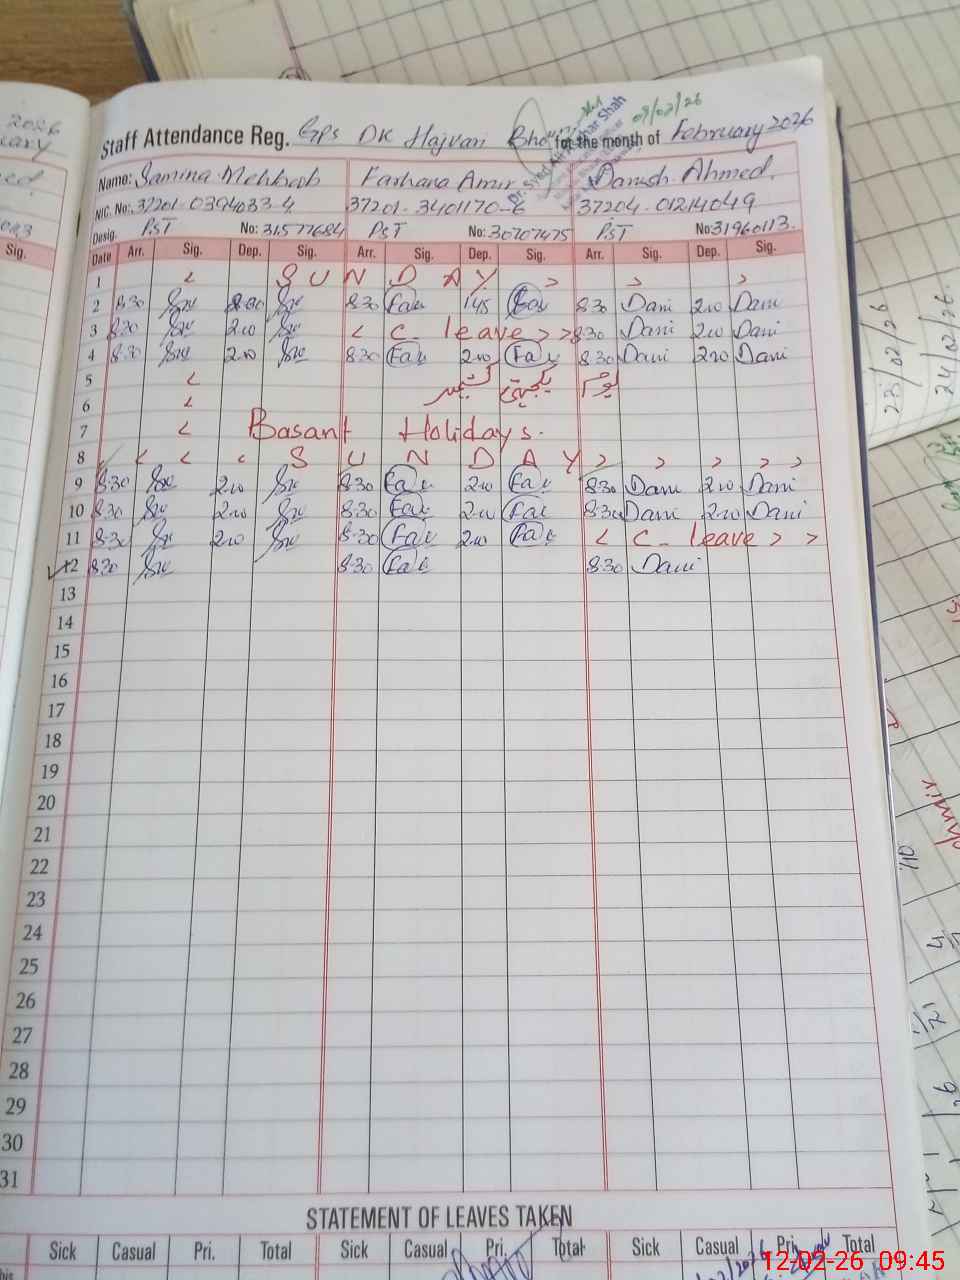 Staff Attendance Reg. GPS DK Hajvari for the month of February 2026
09/02/26
Name: Samina Mehboob Farhana Amir Danish Ahmed.
NIC. No: 37201-0394033-4 37201-3401170-6 37204-01214049
Desig. PST No: 31577684 PST No: 30707475 PST No: 31960113.
Date Arr. Sig. Dep. Sig. Arr. Sig. Dep. Sig. Arr. Sig. Dep. Sig.
1 < S U N D A Y > > >
2 8:30 8:30 Fau 1:45 Fau 8:30 Dani 2:10 Dani
3 8:30 2:10 < C- leave > > 8:30 Dani 2:10 Dani
4 8:30 2:10 8:30 Fau 2:10 Fau 8:30 Dani 2:10 Dani
5 < یوم یکجہتی کشمیر
6 <
7 < Basant Holidays.
8 < < < < S U N D A Y > > > > >
9 8:30 2:10 8:30 Fau 2:10 Fau 8:30 Dani 2:10 Dani
10 8:30 2:10 8:30 Fau 2:10 Fau 8:30 Dani 2:10 Dani
11 8:30 2:10 8:30 Fau 2:10 Fau < C- leave > >
12 8:30 8:30 Fau 8:30 Dani
13
14
15
16
17
18
19
20
21
22
23
24
25
26
27
28
29
30
31
STATEMENT OF LEAVES TAKEN
Sick Casual Pri. Total Sick Casual Pri. Total Sick Casual Pri. Total
12-02-26 09:45
2026
Sig.
23/02/26
24/02/26.